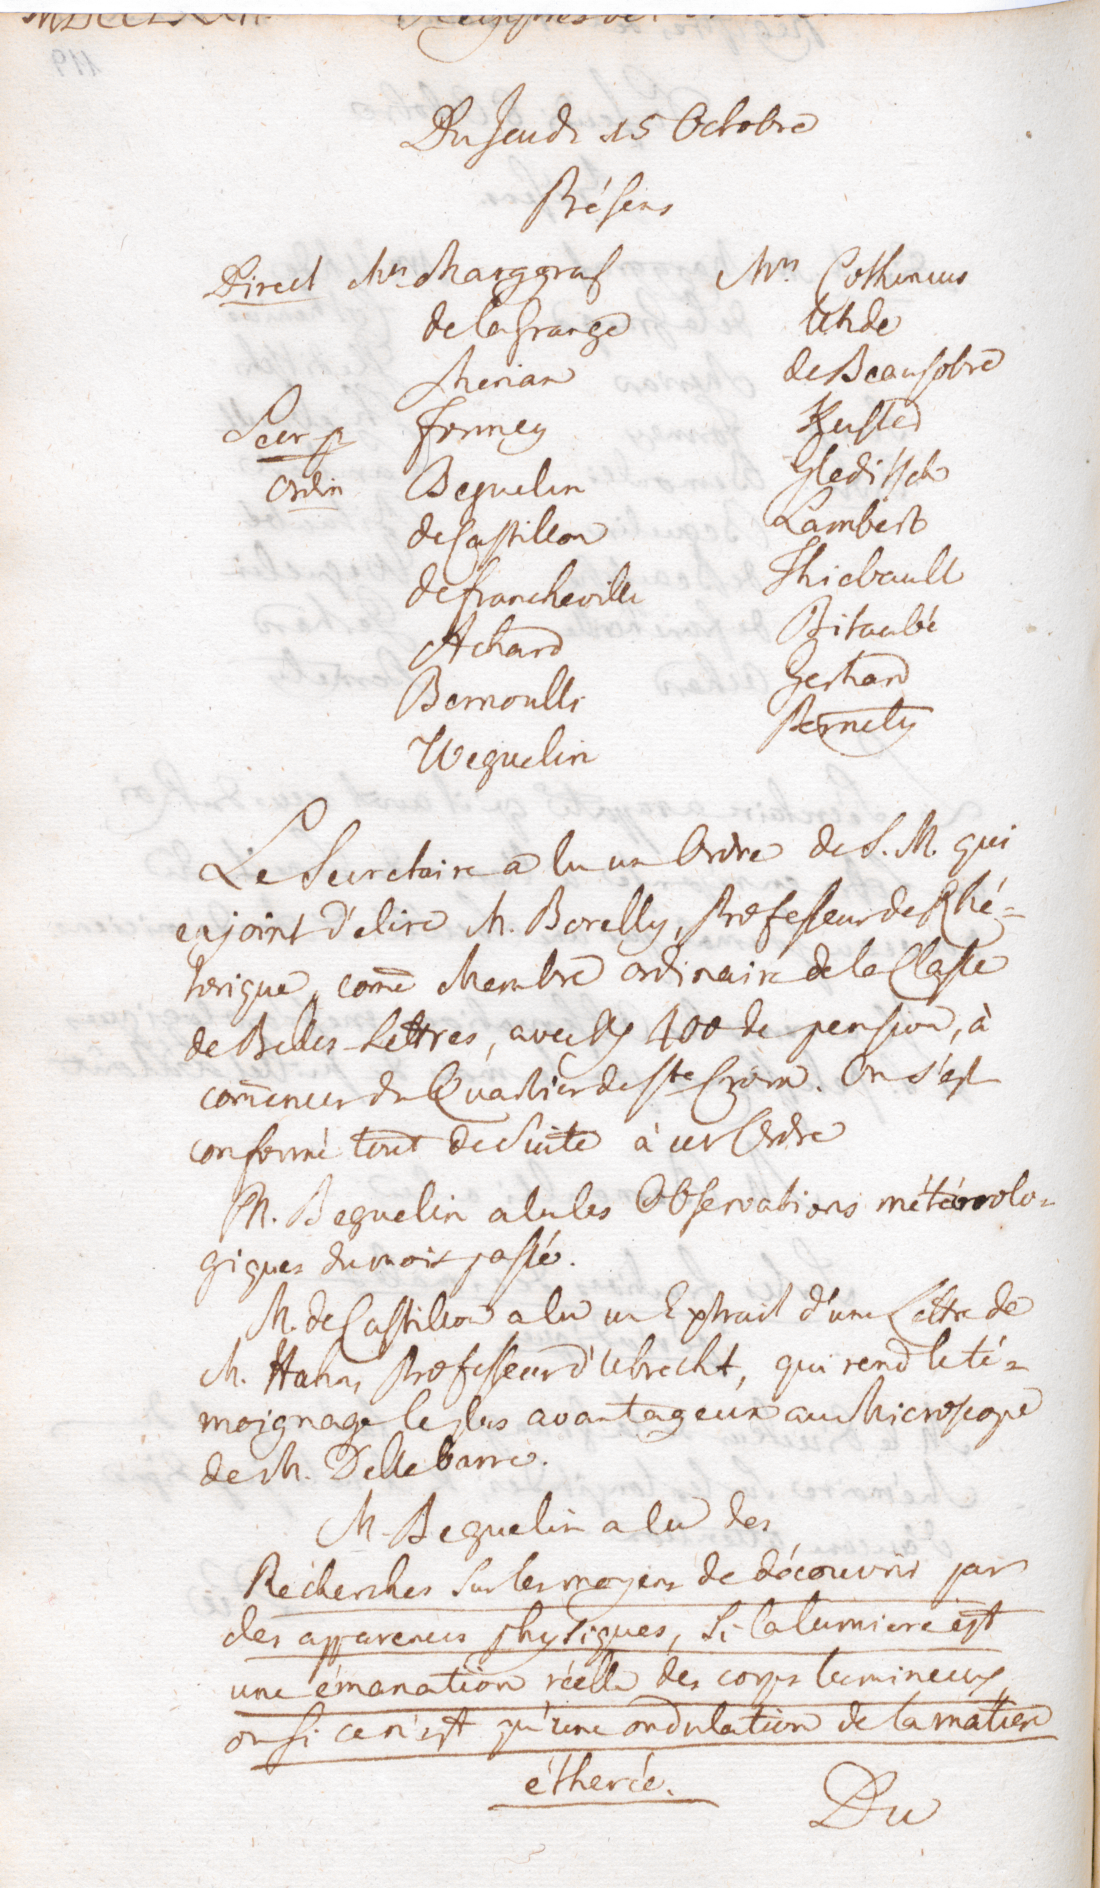 Du Jeudi 15 Octobre
Présens
Direct Mrs. Marggraf
de la Grange
Merian
Secr. p. Formey
ordin Beguelin
de Castillon
de Francheville
Achard
Bernoulli
Weguelin
Mrs. Cothenius
Uhde
de Beausobre
Kuster
Gleditsch
Lambert
Thiebault
Bitaubé
Gerhard
Pernety
Le Secretaire a lu un Ordre de S. M. qui
enjoint d'élire M. Borelly, Professeur de Rhé=
torique, come Membre ordinaire de la Classe
de Belles-Lettres, avec 400 de pension, à
comencer du Quartier de Ste Croix. On s'est
conformé tout de suite à cet Ordre
M. Beguelin a lu les Observations météorolo=
giques du mois passé.
M. de Castillon a lu un Extrait d'une Lettre de
M. Hahn, Professeur d'Utrecht, qui rend le té=
moignage le plus avantageux au Microscope
de M. Dellebarre.
M. Beguelin a lu des
Recherches sur les moyens de découvrir par
des apparences physiques, si la lumiere est
une émanation réelle des corps lumineux,
ou si ce n'est qu'une ondulation de la matiere
étherée.
Du